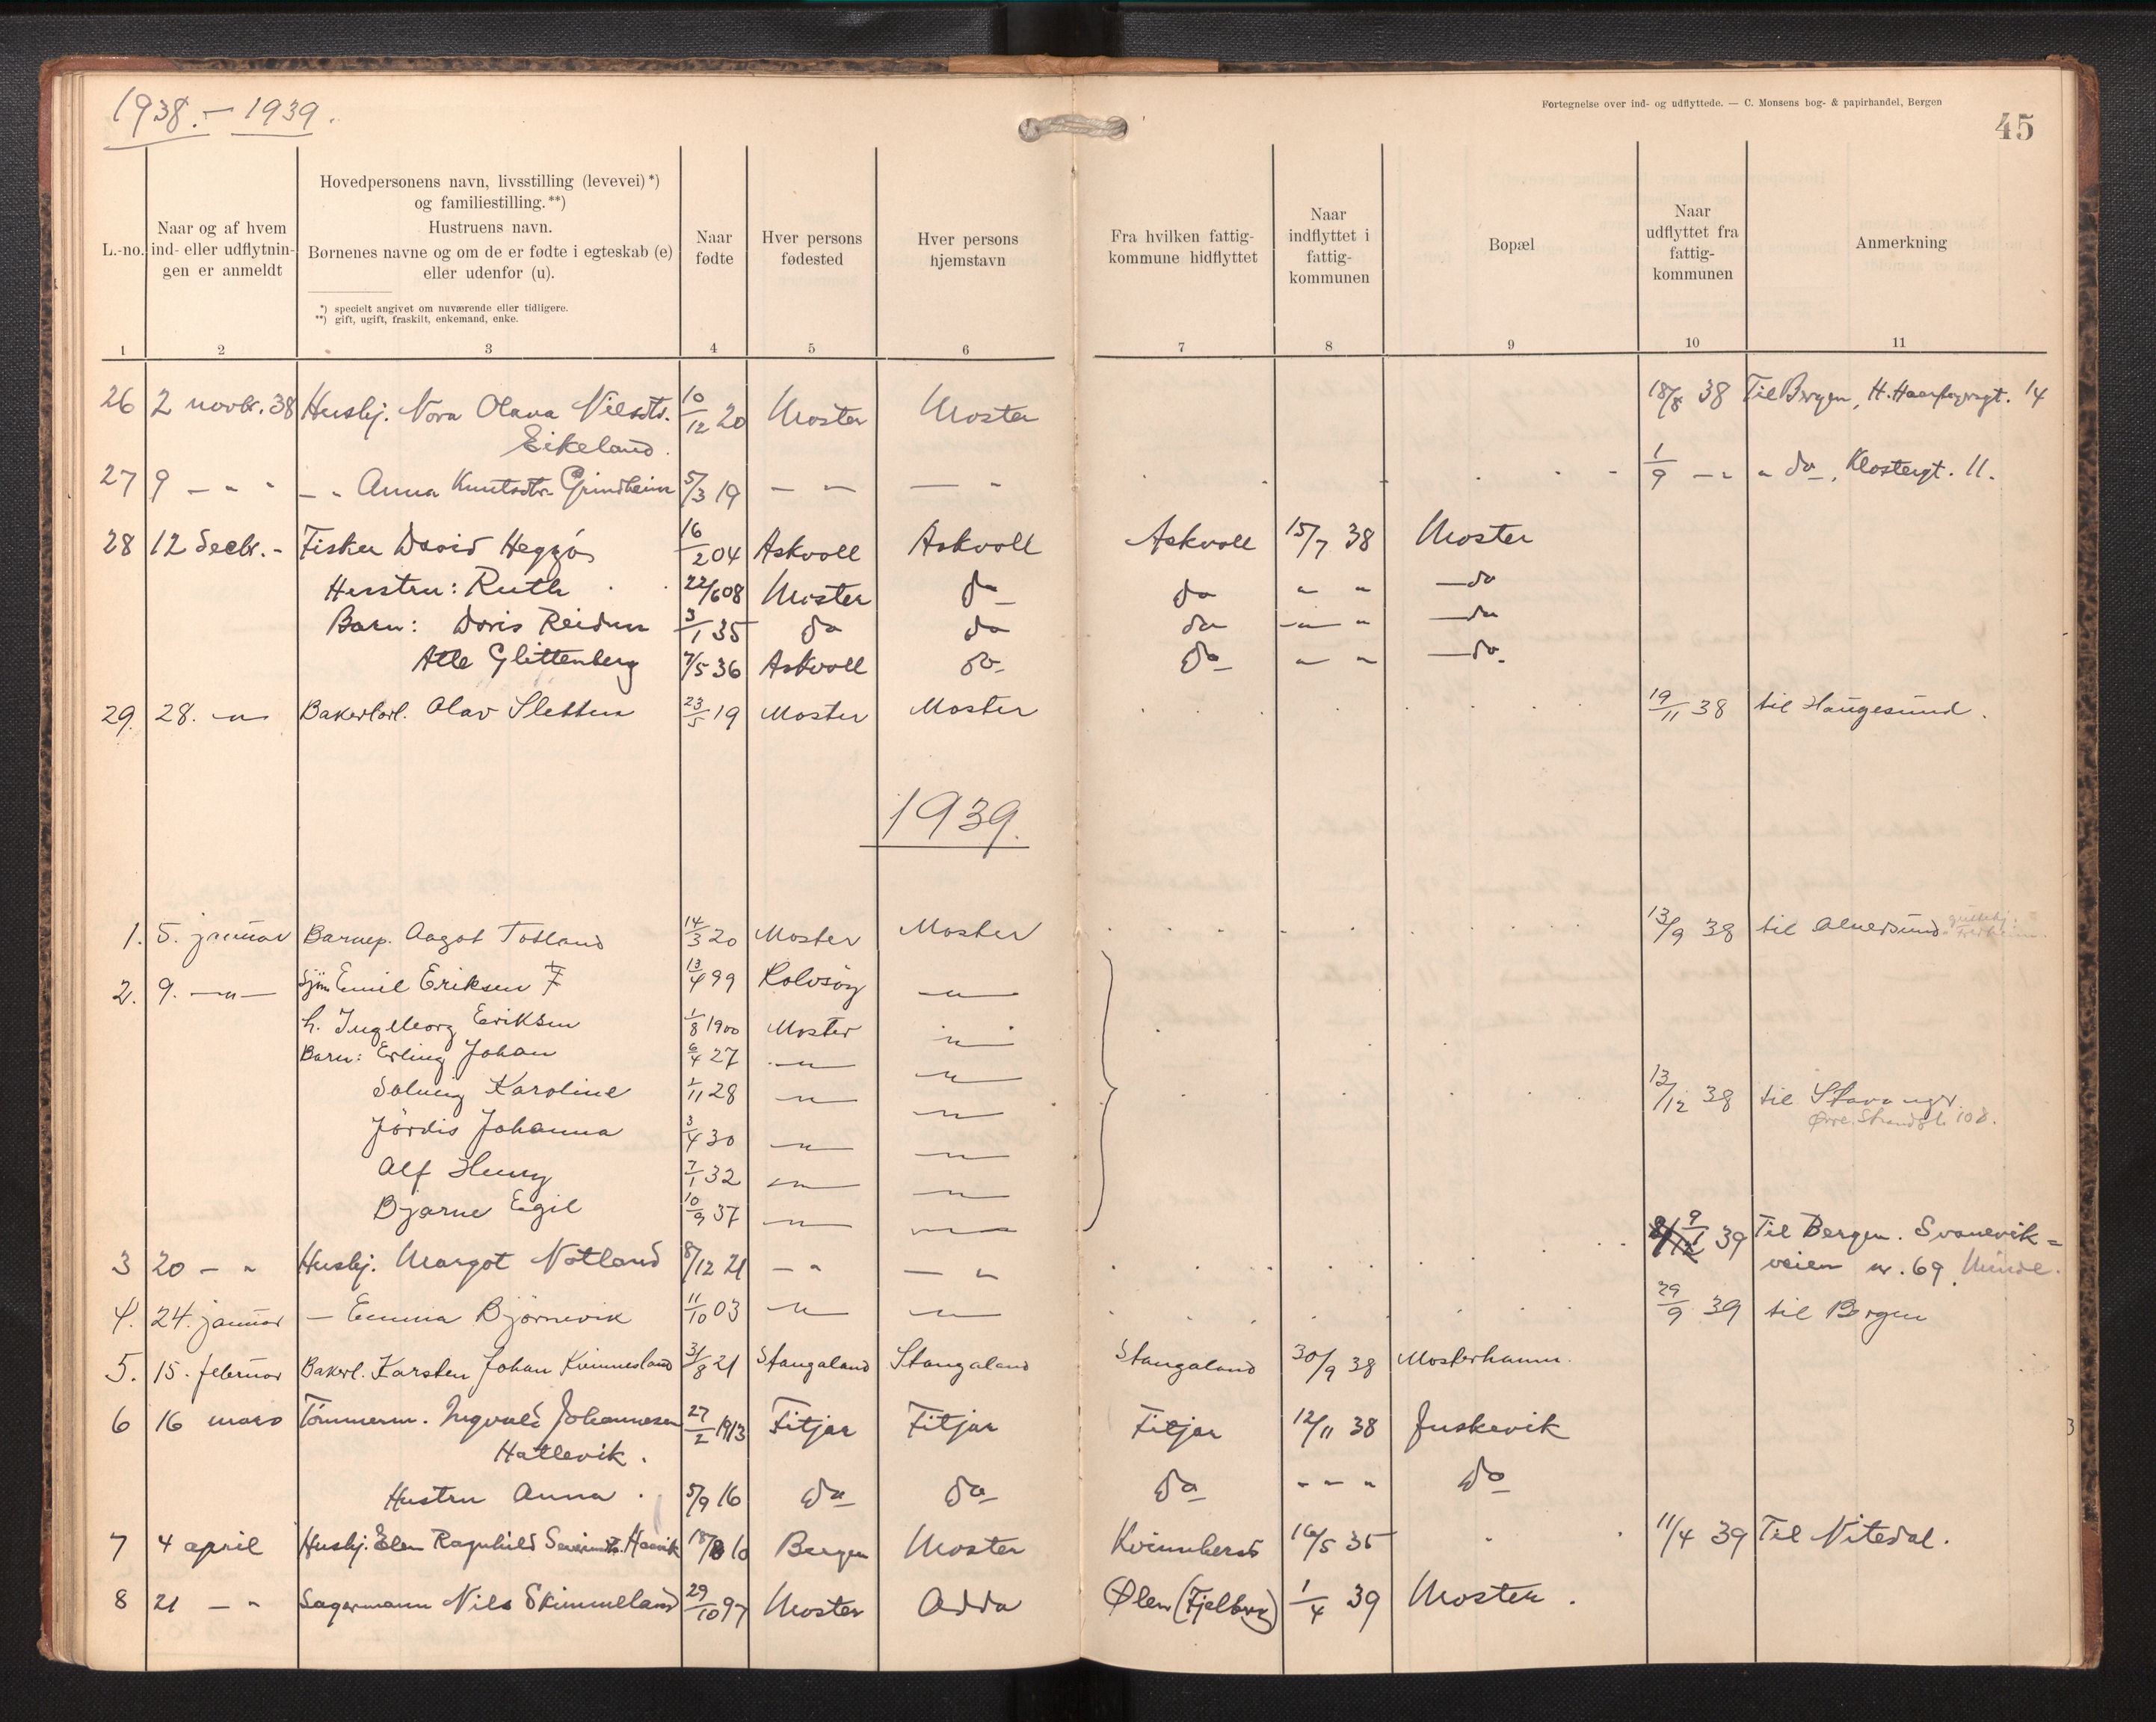 1938. — 1939.
Fortegnelse over ind- og udflyttede. — C. Monsens bog- & papirhandel, Bergen
45
L.-no.
Naar og af hvem
ind- eller udflytnin-
gen er anmeldt
Hovedpersonens navn, livsstilling (levevei)*)
og familiestilling.**)
Hustruens navn.
Børnenes navne og om de er fødte i egteskab (e)
eller udenfor (u).
*) specielt angivet om nuværende eller tidligere.
**) gift, ugift, fraskilt, enkemand, enke.
Naar
fødte
Hver persons
fødested
Hver persons
hjemstavn
Fra hvilken fattig-
kommune hidflyttet
Naar
indflyttet i
fattig-
kommunen
Bopæl
Naar
udflyttet fra
fattig-
kommunen
Anmerkning
1 2 3 4 5 6 7 8 9 10 11
26 2 novbr. 38 Hushj. Nora Olava Nilsdtr. 10/12 20 Moster Moster 18/8 38 Til Bergen, H. Haarfagregt. 14
Eikeland.
27 9 — " " — " Anna Knutsdtr. Grindheim 5/3 19 — " — " 1/9 — " " do, Klostergt. 11.
28 12 decbr. - Fisker David Heggøs 16/2 04 Askvoll Askvoll Askvoll 15/7 38 Moster
Hustru: Ruth 22/6 08 Moster do do " " —do
Barn: Doris Reidun 3/1 35 do do do —"— " —do
Atle Glittenberg 7/5 36 Askvoll do do " " —do
29. 28. —"— Bakerlærl. Olav Sletten 23/5 19 Moster Moster 19/11 38 til Haugesund.
1939.
1. 5. januar Barnep. Aagot Totland 14/3 20 Moster Moster 13/9 38 til Alversund
2. 9. —"— Sjøm Emil Eriksen 13/4 99 Rolvsøy —"—
h. Ingeborg Eriksen 1/8 1900 Moster —"—
Barn: Erling Johan 6/4 27 —"— —"—
Solveig Karoline 1/11 28 —"— —"— 13/12 38 til Stavanger.
Jørdis Johanna 3/4 30 —"— —"— Øvre Strandgt. 108.
Alf Henry 7/1 32 —"— —"—
Bjarne Egil 10/9 37 —"— —"—
3 20 — " Hushj. Margot Notland 8/12 21 — " — " 9/1 39 Til Bergen. Svanevik=
veien nr. 69, Minde.
4. 24. januar — Emma Bjørnevik 11/10 03 —"— —"— 29/9 39 til Bergen
5. 15. februar Bakerl. Karsten Johan Kvinnesland 31/8 21 Stangaland Stangaland Stangaland 30/9 38 Mosterhamn.
6 16 mars Tømmerm. Ingvald Johannesen 27/2 1913 Fitjar Fitjar Fitjar 12/11 38 Juskevik
Hatlevik.
Hustru Anna. 5/9 16 do do do - - " do
7 4 april Hushj. Elen Ragnhild Haavik 10 Bergen Moster Kvinnherad 16/5 35 11/4 39 Til Nitedal.
8 21 — " Sagermann Nils Skimmeland 29/10 97 Moster Odda Ølen (Fjelberg) 1/4 39 Moster.